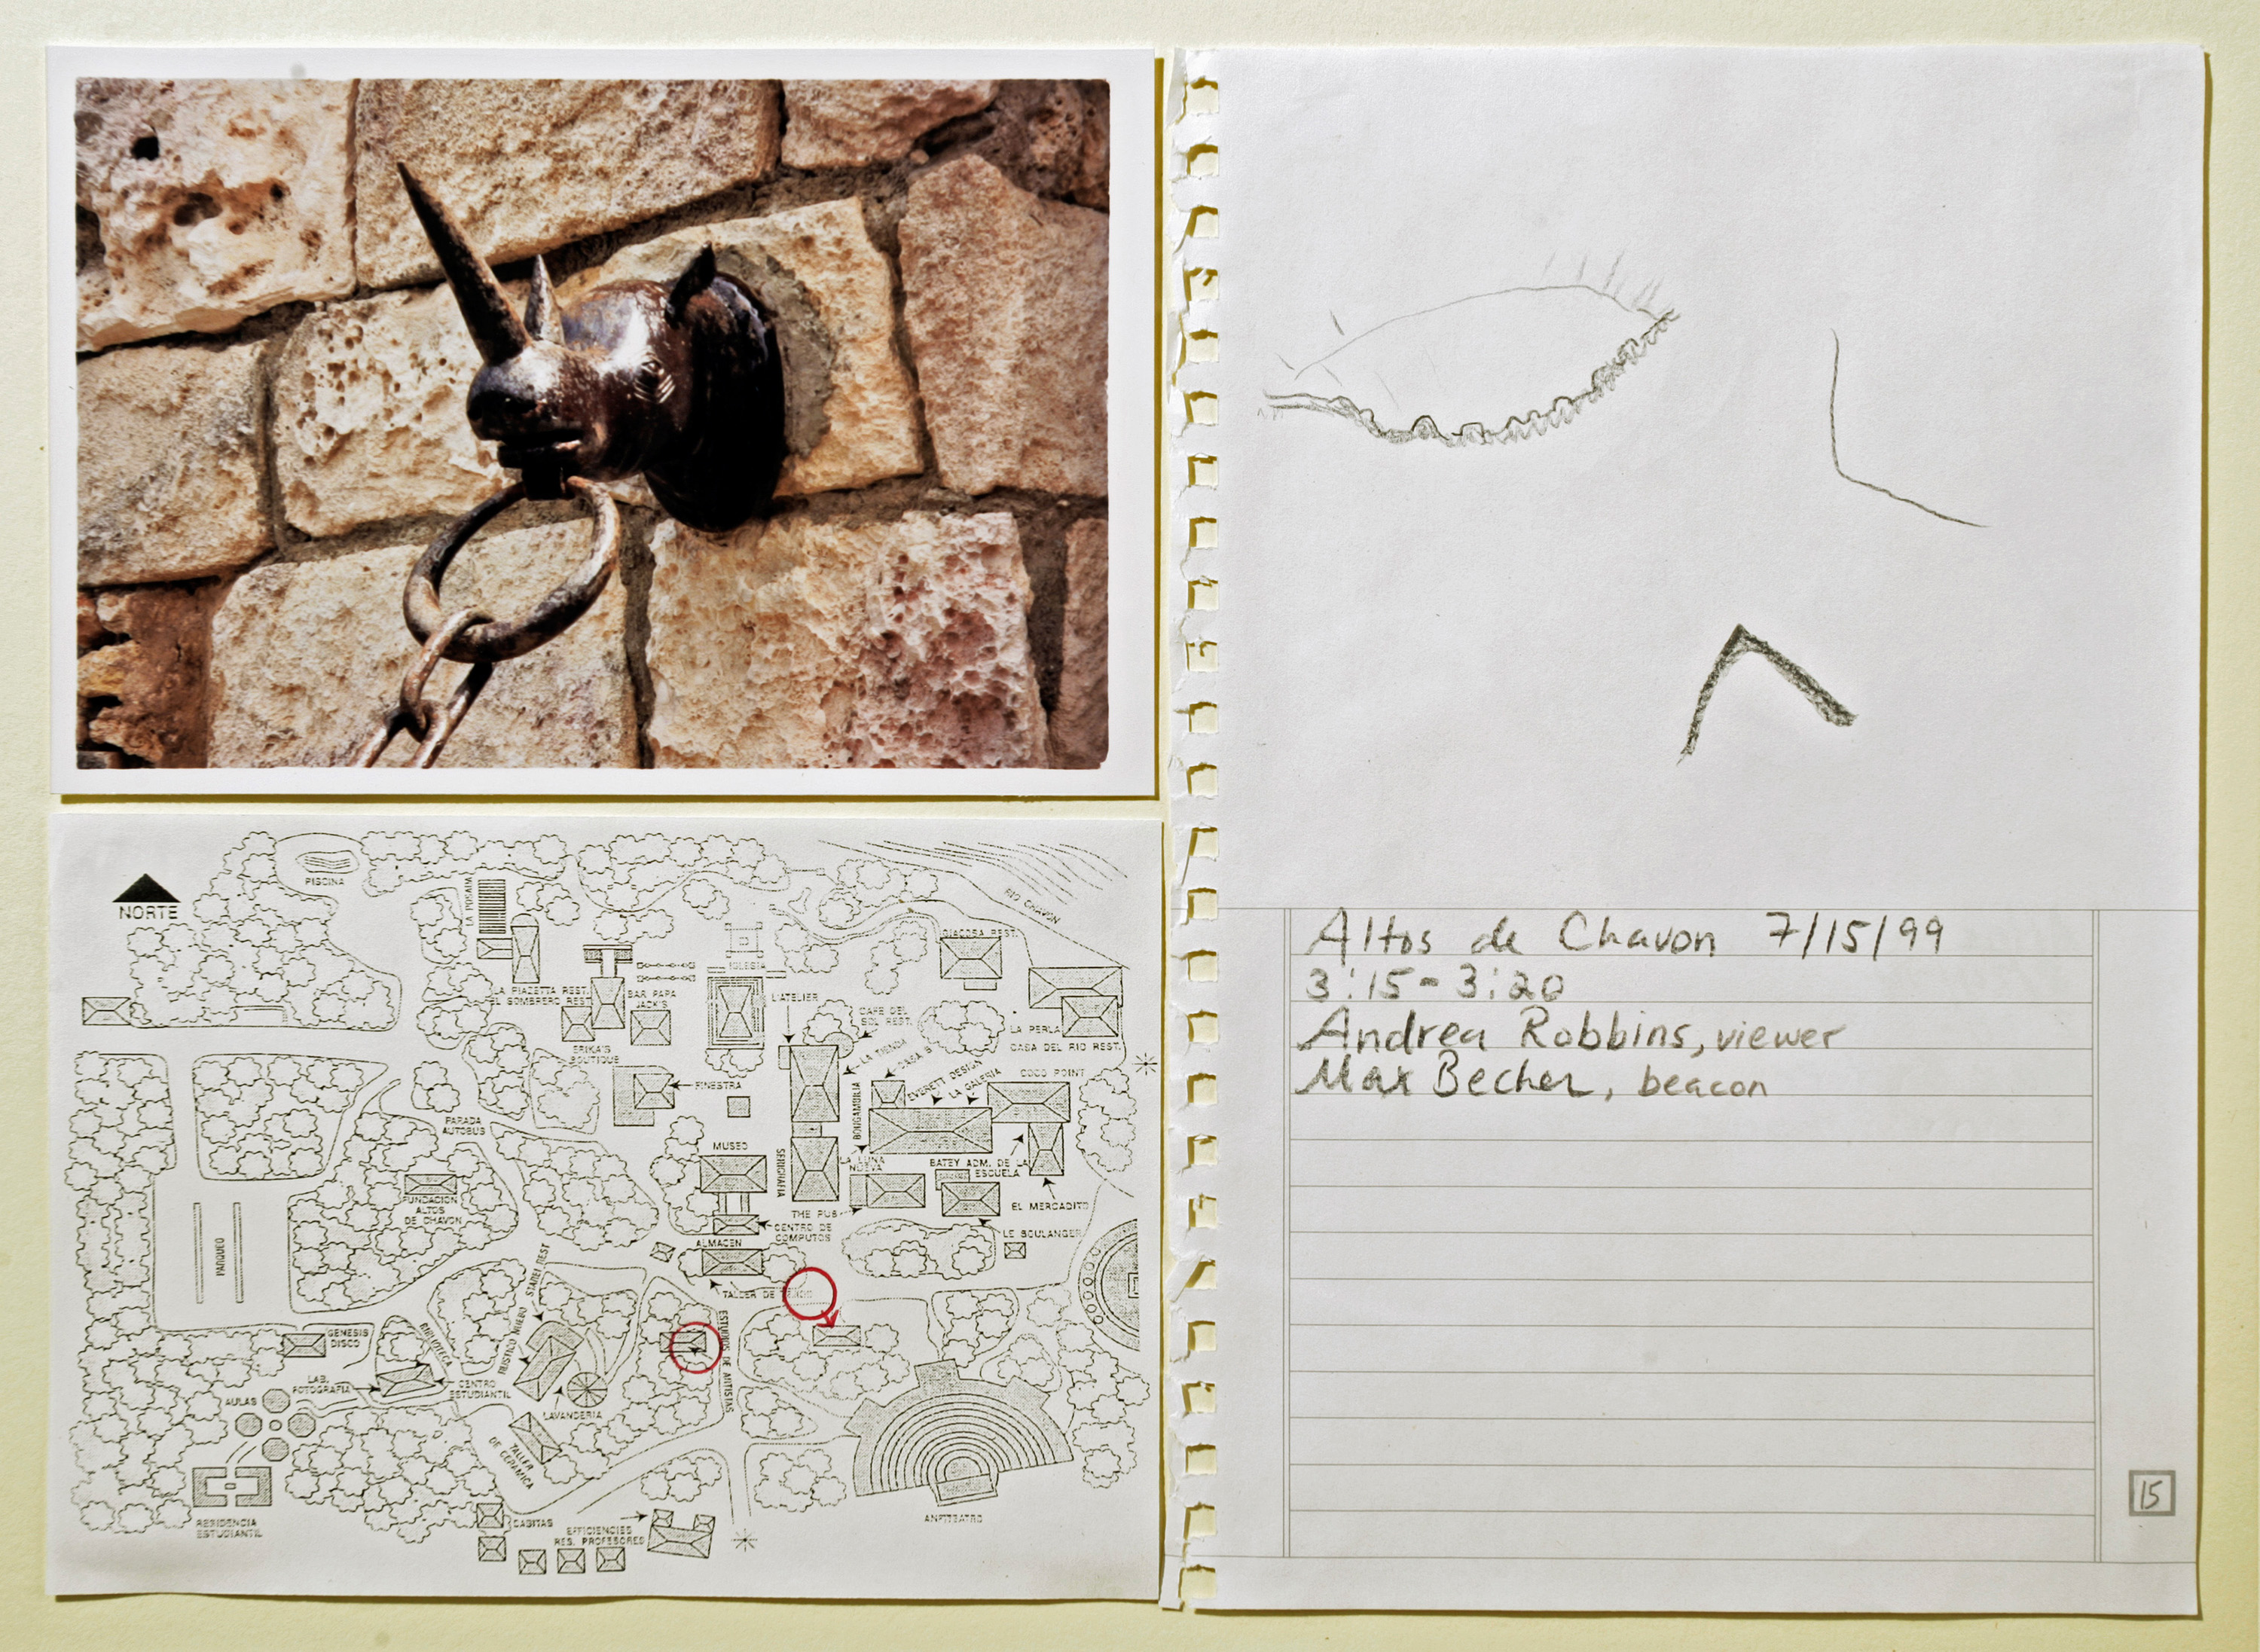 PISCINA
NORTE
LA POSADA
RIO CHAVON
GIACOSA REST.
IGLESIA
LA PIAZETTA REST.
EL SOMBRERO REST.
BAR PAPA
JACK'S
L'ATELIER
CAFE DEL
SOL REST.
LA PERLA
CASA DEL RIO REST.
ERIKA'S
BOUTIQUE
LA TIENDA
CASA
EVERETT DESIGN
LA GALERIA
COCO POINT
FINESTRA
BOUGAMBILIA
PARADA
AUTOBUS
MUSEO
SERIGRAFIA
LA LUNA
NUEVA
BATEY ADM. DE LA
ESCUELA
FUNDACION
ALTOS
DE CHAVON
EL MERCADITO
THE PUB
CENTRO DE
COMPUTOS
LE BOULANGER
ALMACEN
PARQUEO
TALLER DE
ESTUDIOS DE ARTISTAS
GENESIS
DISCO
BIBLIOTECA
LAB.
FOTOGRAFIA
CENTRO
ESTUDIANTIL
AULAS
LAVANDERIA
TALLER
DE CERAMICA
RESIDENCIA
ESTUDIANTIL
CASITAS
EFFICIENCIES
RES. PROFESORES
ANFITEATRO
Altos de Chavon 7/15/99
3:15-3:20
Andrea Robbins, viewer
Max Becher, beacon
15